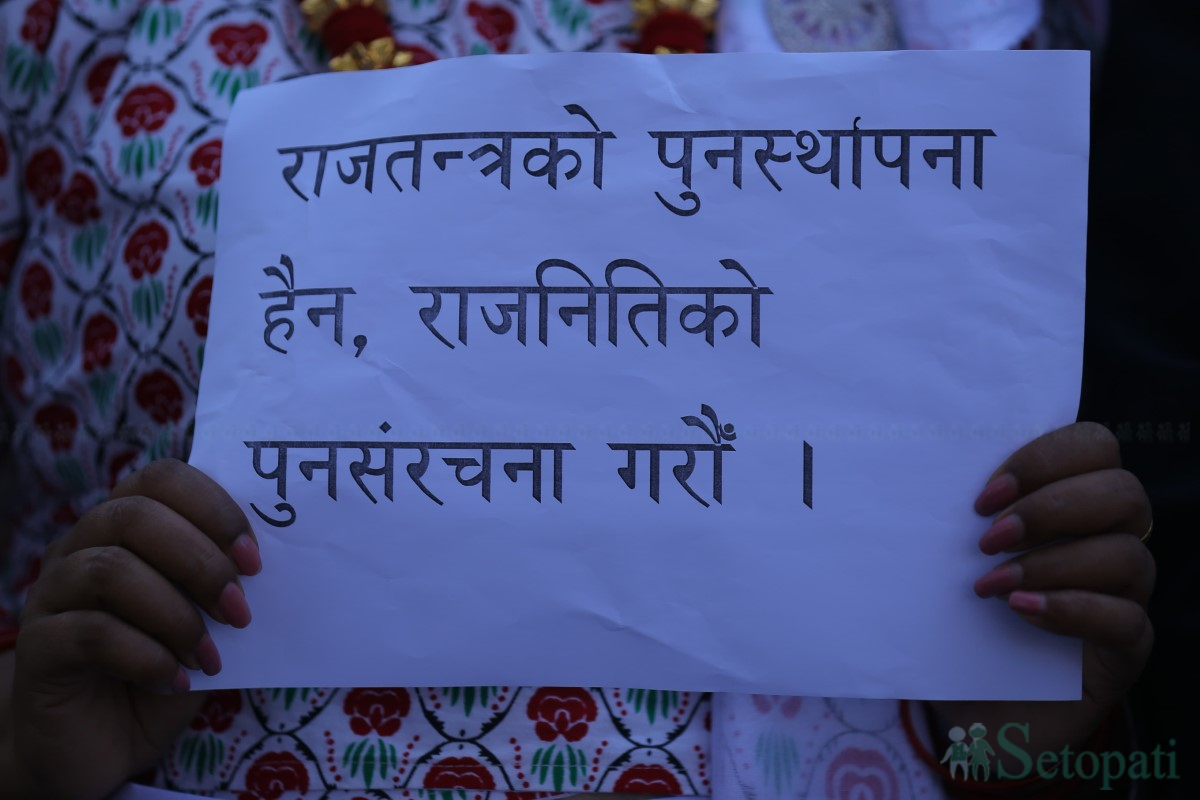 राजतन्त्रको पुनर्स्थापना
हैन, राजनितिको
पुनसंरचना गरौँ ।
Setopati